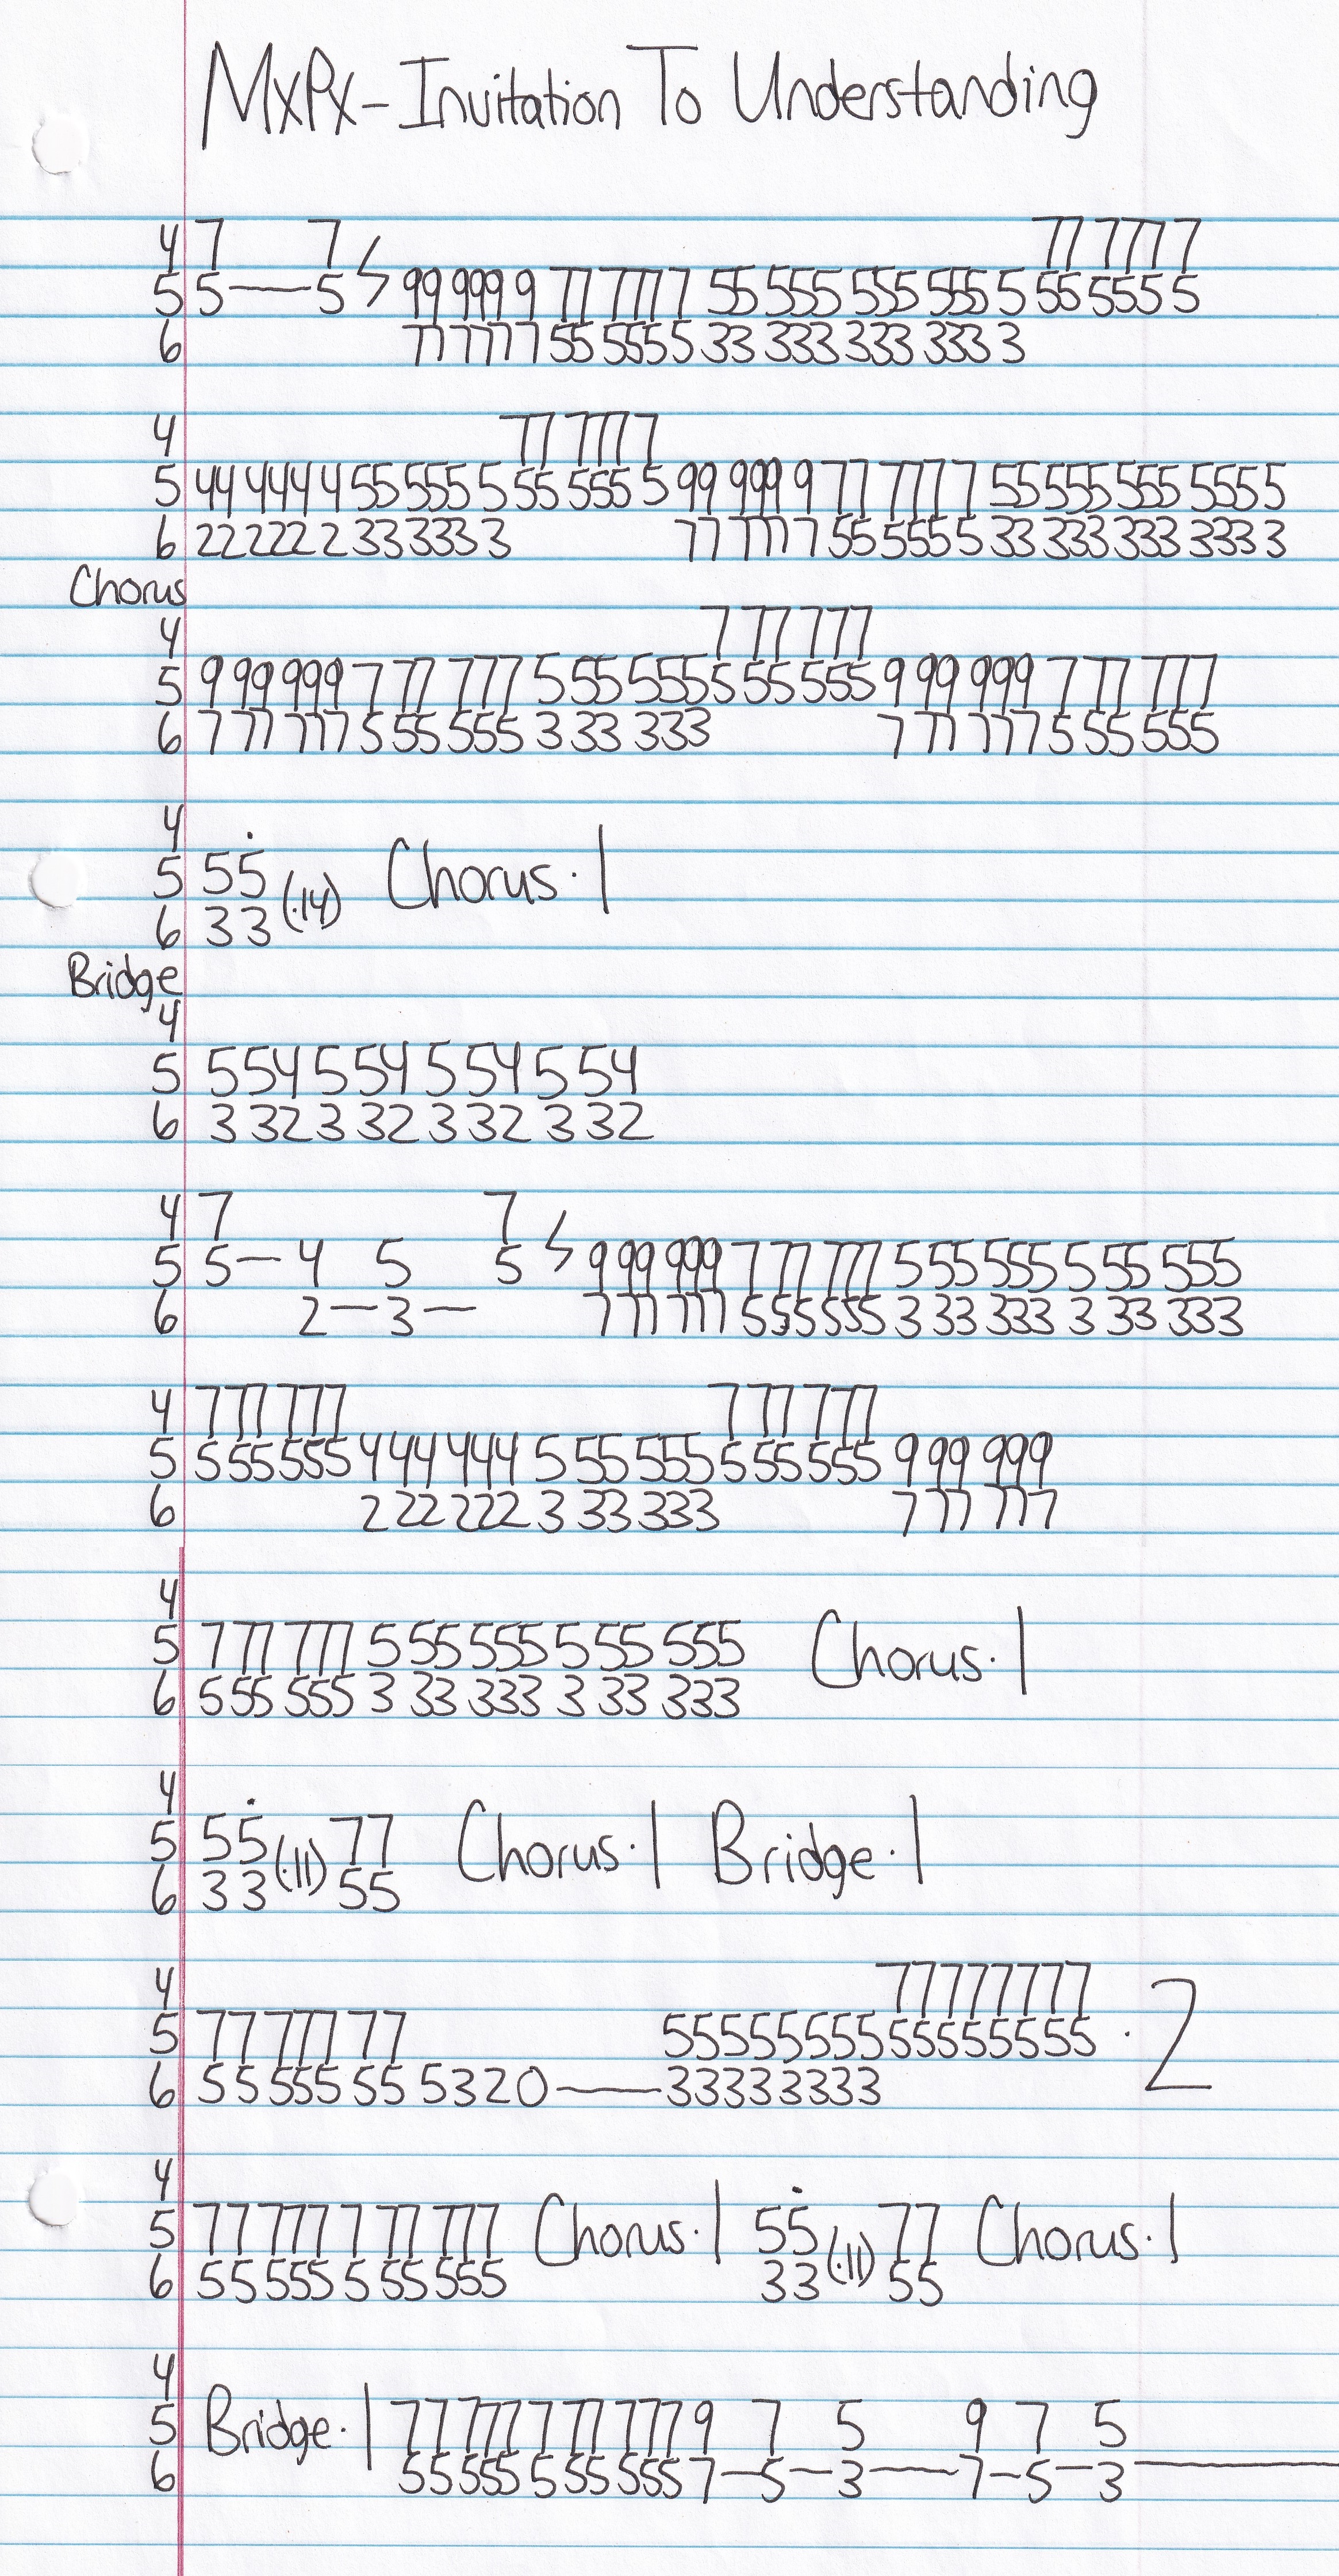 MxPx - Invitation To Understanding
4 7 7 77 777 7
5 5—5 99 999 9 77 777 7 55 555 555 555 5 55 555 5
6 77 777 7 55 555 5 33 333 333 333 3
4 77 777 7
5 44 444 4 55 555 5 55 555 5 99 999 9 77 777 7 55 555 555 5555
6 22 222 2 33 333 3 77 777 7 55 555 5 33 333 333 3333
Chorus
4 7 77 777
5 9 99 999 7 77 777 5 55 555 5 55 555 9 99 999 7 77 777
6 7 77 777 5 55 555 3 33 333 7 77 777 5 55 555
4
5 55 Chorus·1
6 33 (·14)
Bridge
4
5 5 54 5 54 5 54 5 54
6 3 32 3 32 3 32 3 32
4 7 7
5 5—4 5 5 9 99 999 7 77 777 5 55 555 5 55 555
6 2—3— 7 77 777 5 55 555 3 33 333 3 33 333
4 7 77 777 7 77 777
5 5 55 555 4 44 444 5 55 555 5 55 555 9 99 999
6 2 22 222 3 33 333 7 77 777
4
5 7 77 777 5 55 555 5 55 555 Chorus·1
6 5 55 555 3 33 333 3 33 333
4
5 55 77 Chorus·1 Bridge·1
6 33 (·11) 55
4 77777777
5 77 777 77 55555555 55555555 ·2
6 55 555 55 5320—33333333
4
5 77 777 7 77 777 Chorus·1 55 77 Chorus·1
6 55 555 5 55 555 33 (·11) 55
4
5 Bridge·1 77 777 7 77 777 9 7 5 9 7 5
6 55 555 5 55 555 7—5—3—7—5—3—